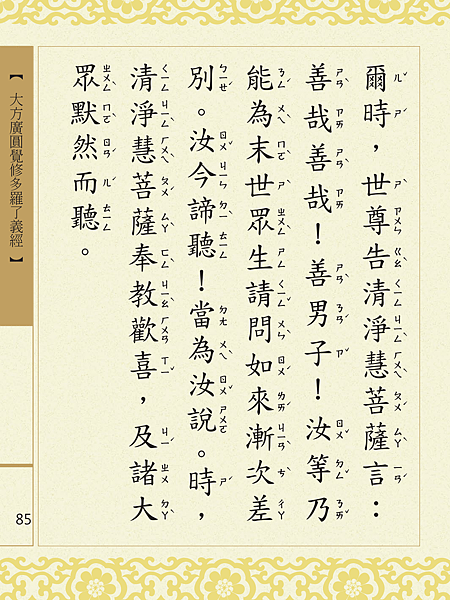 爾時，世尊告清淨慧菩薩言：
善哉善哉！善男子！汝等乃
能為末世眾生請問如來漸次差
別。汝今諦聽！當為汝說。時，
清淨慧菩薩奉教歡喜，及諸大
眾默然而聽。
【大方廣圓覺修多羅了義經】
85